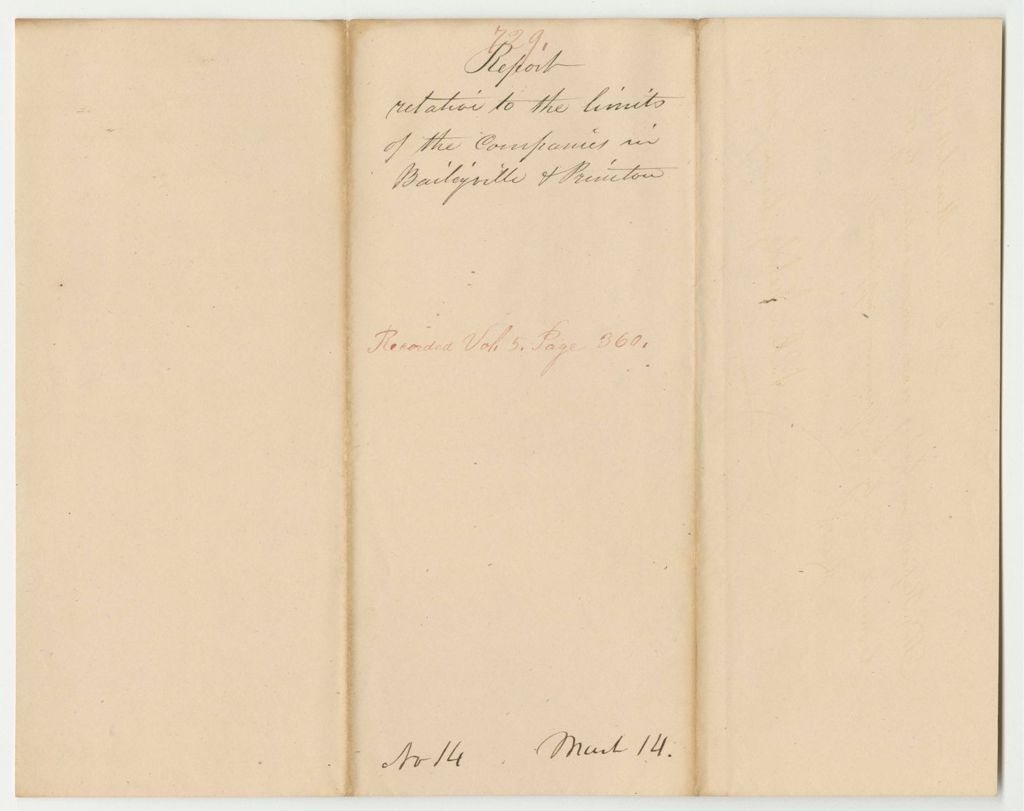 729.
Report
relative to the limits
of the Companies in
Baileyville & Princeton
Recorded Vol. 5. Page 360.
No 14 March 14.